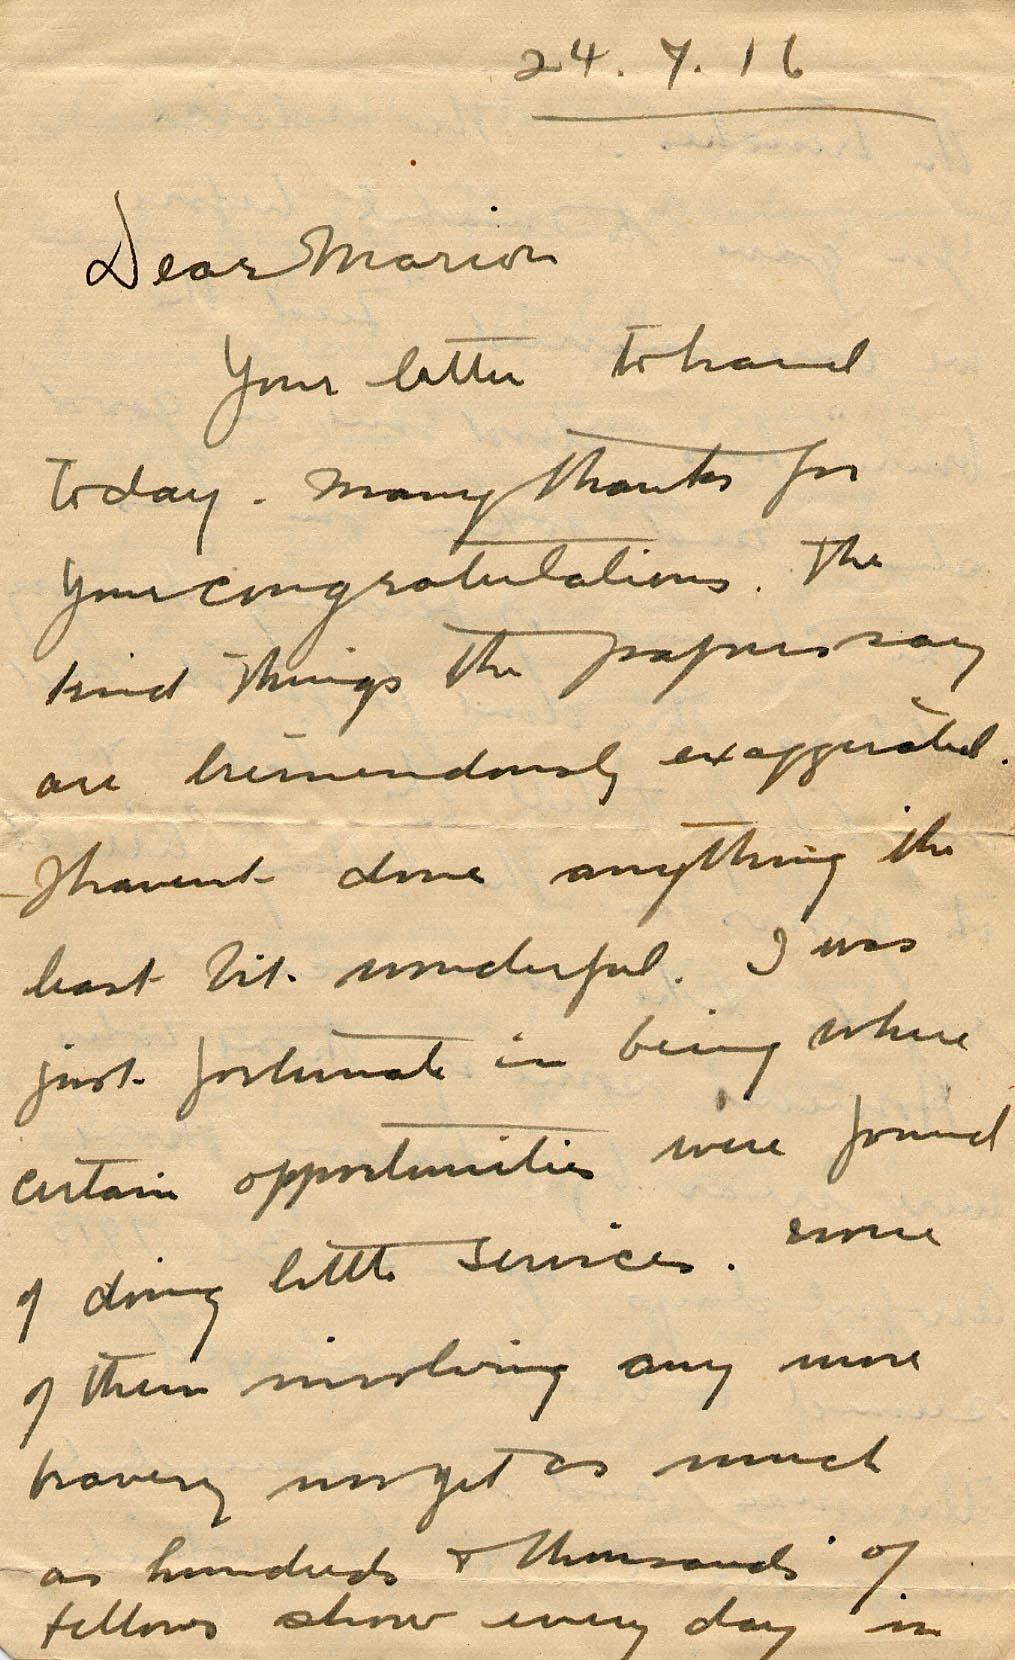 24.7.16
Dear Marion
Your letter to hand
today. Many thanks for
your congratulations. The
kind things the papers say
are tremendously exaggerated.
I havent done anything the
least bit wonderful. I was
just fortunate in being where
certain opportunities were found
of doing little services. none
of them involving any more
bravery nor yet as much
as hundreds & thousands of
fellows show every day in